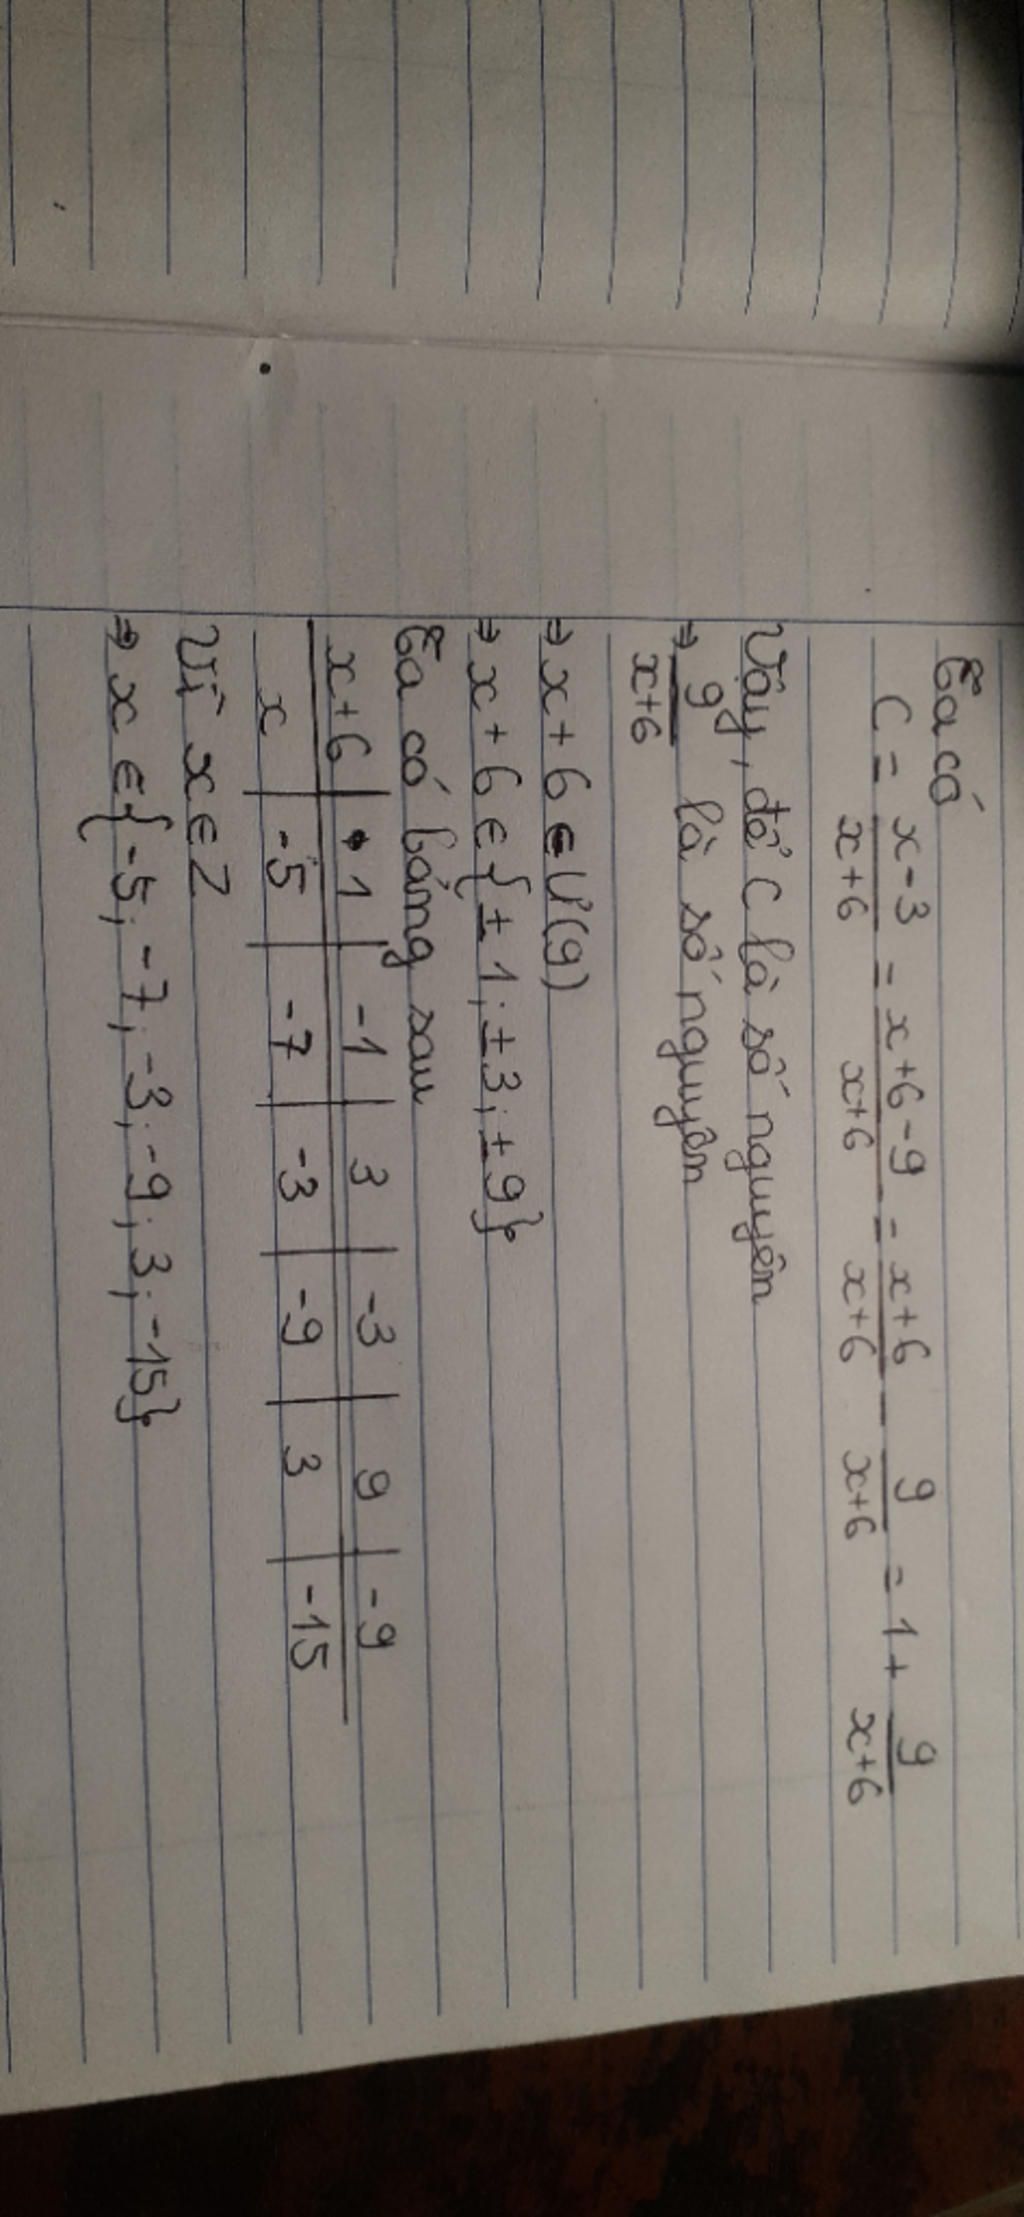 Ta có
C = x-3/x+6 = x+6-9/x+6 = x+6/x+6 - 9/x+6 = 1 + 9/x+6
Vậy, để C là số nguyên
⇒ 9/x+6 là số nguyên
⇒ x + 6 ∈ Ư(9)
⇒ x + 6 ∈ {± 1; ± 3; ± 9}
Ta có bảng sau
x+6 | 1 | -1 | 3 | -3 | 9 | -9
x | -5 | -7 | -3 | -9 | 3 | -15
Vì x ∈ Z
⇒ x ∈ {-5; -7; -3; -9; 3; -15}